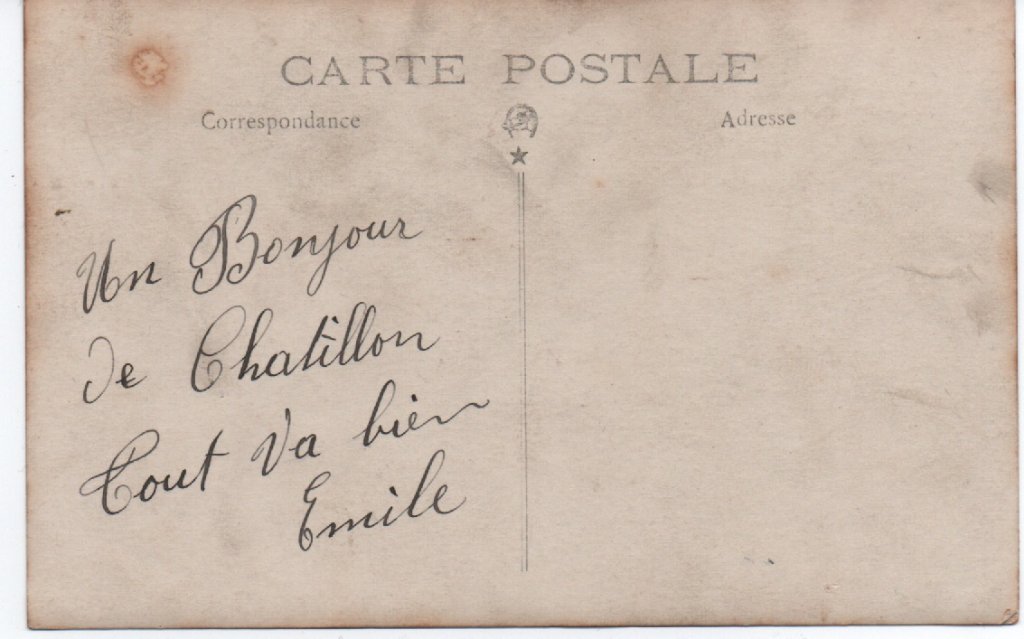 CARTE POSTALE
Correspondance
Adresse
Un Bonjour
de Chatillon
Tout va bien
Emile